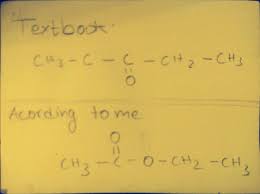 Textbook.
CH₃ - C - C - CH₂ - CH₃
||
O
Acording to me
O
||
CH₃ - C - O - CH₂ - CH₃